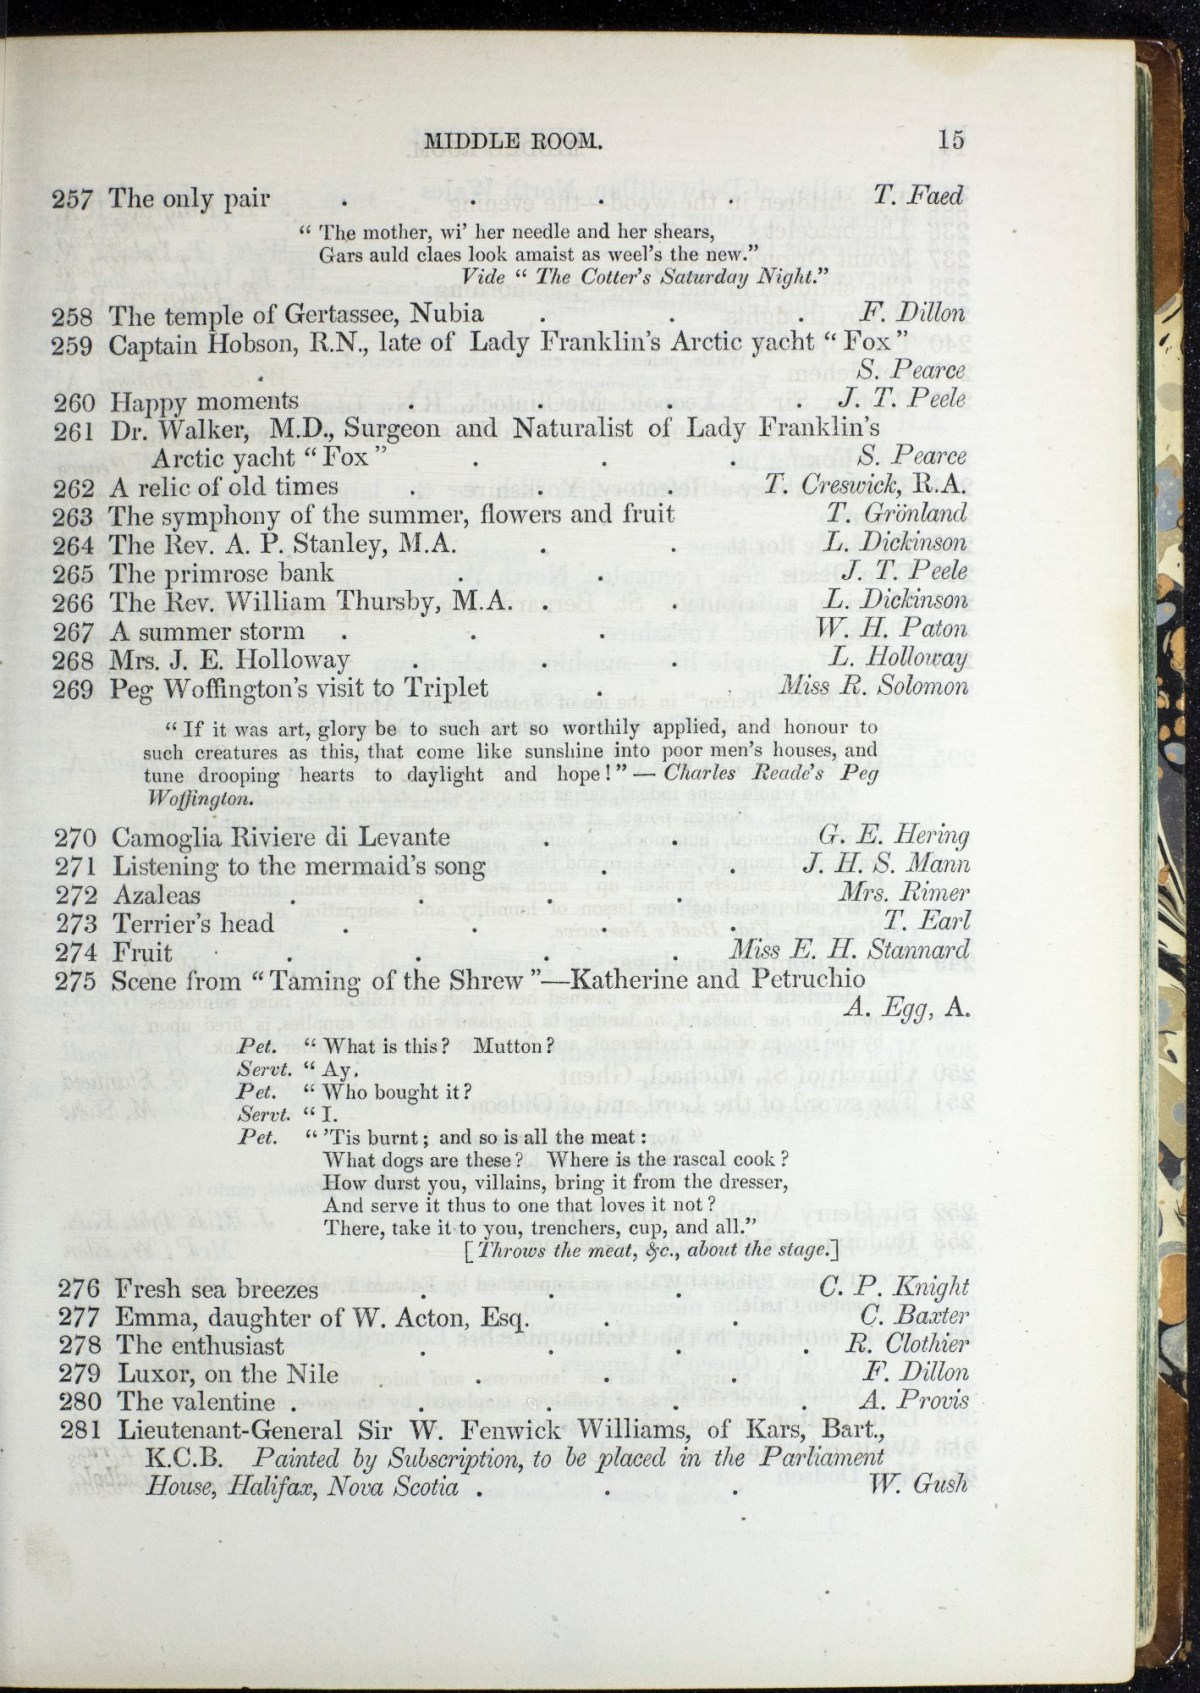 MIDDLE ROOM. 15
257 The only pair . . . . T. Faed
“ The mother, wi’ her needle and her shears,
Gars auld claes look amaist as weel’s the new.”
Vide “ The Cotter’s Saturday Night.”
258 The temple of Gertassee, Nubia . . . F. Dillon
259 Captain Hobson, R.N., late of Lady Franklin’s Arctic yacht “ Fox”
S. Pearce
260 Happy moments . . . . J. T. Peele
261 Dr. Walker, M.D., Surgeon and Naturalist of Lady Franklin’s
Arctic yacht “ Fox ” . . . S. Pearce
262 A relic of old times . . . T. Creswick, R.A.
263 The symphony of the summer, flowers and fruit T. Grönland
264 The Rev. A. P. Stanley, M.A. . . L. Dickinson
265 The primrose bank . . J. T. Peele
266 The Rev. William Thursby, M.A. . . L. Dickinson
267 A summer storm . . . W. H. Paton
268 Mrs. J. E. Holloway . . . L. Holloway
269 Peg Woffington’s visit to Triplet . . Miss R. Solomon
“ If it was art, glory be to such art so worthily applied, and honour to
such creatures as this, that come like sunshine into poor men’s houses, and
tune drooping hearts to daylight and hope!” — Charles Reade’s Peg
Woffington.
270 Camoglia Riviere di Levante . . G. E. Hering
271 Listening to the mermaid’s song . . J. H. S. Mann
272 Azaleas . . . . Mrs. Rimer
273 Terrier’s head . . . . T. Earl
274 Fruit . . . . Miss E. H. Stannard
275 Scene from “ Taming of the Shrew ”—Katherine and Petruchio
A. Egg, A.
Pet. “ What is this? Mutton?
Servt. “ Ay.
Pet. “ Who bought it?
Servt. “ I.
Pet. “ ’Tis burnt; and so is all the meat:
What dogs are these? Where is the rascal cook?
How durst you, villains, bring it from the dresser,
And serve it thus to one that loves it not?
There, take it to you, trenchers, cup, and all.”
[Throws the meat, &c., about the stage.]
276 Fresh sea breezes . . . C. P. Knight
277 Emma, daughter of W. Acton, Esq. . . C. Baxter
278 The enthusiast . . . . R. Clothier
279 Luxor, on the Nile . . . F. Dillon
280 The valentine . . . . . A. Provis
281 Lieutenant-General Sir W. Fenwick Williams, of Kars, Bart.,
K.C.B. Painted by Subscription, to be placed in the Parliament
House, Halifax, Nova Scotia . . . W. Gush